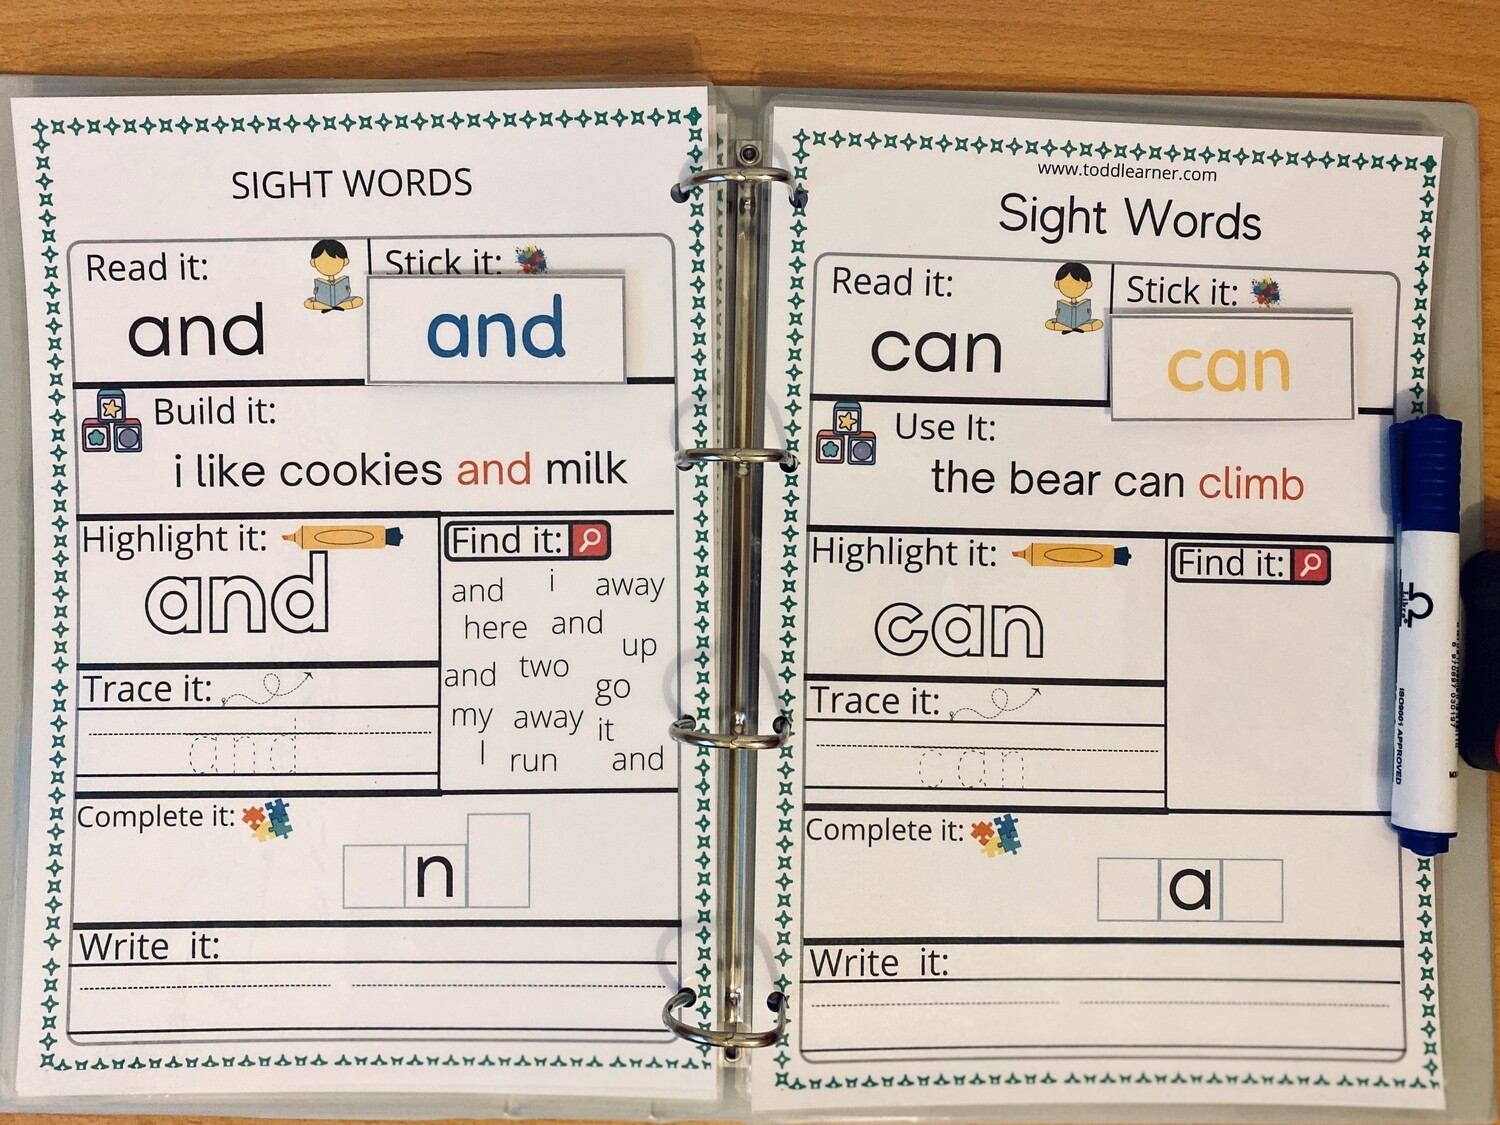 SIGHT WORDS
Read it:
and
Stick it:
and
Build it:
i like cookies and milk
Highlight it:
and
Find it:
and i away
here and
up
and two
go
my away it
I run and
Trace it:
and
Complete it:
n
Write it:
www.toddlearner.com
Sight Words
Read it:
can
Stick it:
can
Use It:
the bear can climb
Highlight it:
can
Find it:
Trace it:
can
Complete it:
a
Write it:
ISO9001 APPROVED